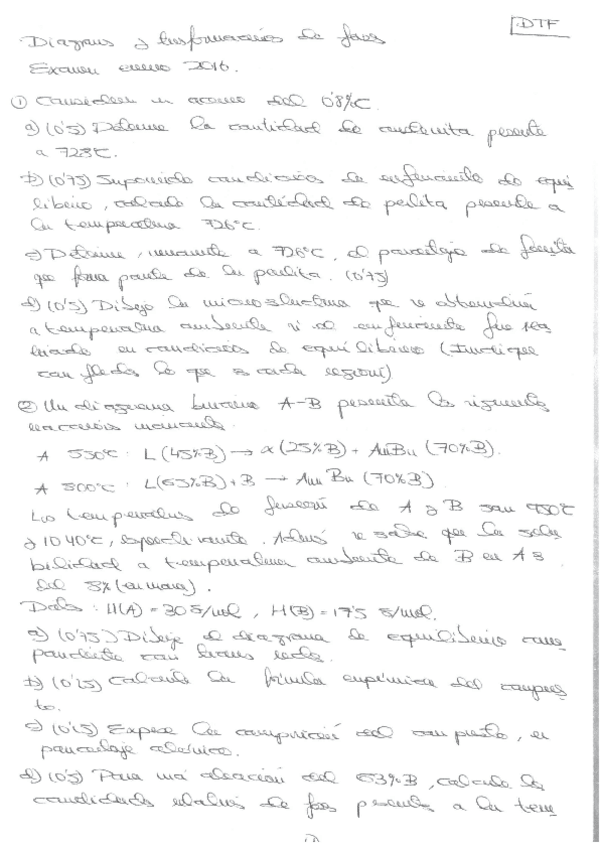 DTF
Diagramas y transformaciones de fases
Examen enero 2016.
① Considere un acero del 0'8%C.
a) (0'5) Determine la cantidad de austenita presente
a 728°C.
b) (0'75) Suponiendo condiciones de enfriamiento de equi
librio, calcule la cantidad de perlita presente a
la temperatura 726°C.
c) Determine, nuevamente a 726°C, el porcentaje de ferrita
que forma parte de la perlita. (0'75)
d) (0'5) Dibuje la microestructura que se obtendría
a temperatura ambiente si el enfriamiento fue rea
lizado en condiciones de equilibrio (Indique
con flechas lo que es cada región)
② Un diagrama binario A-B presenta las siguientes
reacciones invariantes.
A 550°C: L(45%B) → α(25%B) + AmBn (70%B).
A 800°C: L(63%B) + B → AmBn (70%B)
Las temperaturas de fusión de A y B son 950°C
y 1040°C, respectivamente. Además se sabe que la solu
bilidad a temperatura ambiente de B en A es
del 5% (en masa).
Datos: M(A) = 30 g/mol, M(B) = 17'5 g/mol.
a) (0'75) Dibuje el diagrama de equilibrio corres
pondiente con líneas rectas.
b) (0'25) Calcule la fórmula empírica del compues
to.
c) (0'25) Exprese la composición del compuesto, en
porcentaje atómico.
d) (0'5) Para una aleación del 63%B, calcule las
cantidades relativas de fases presentes a la tem